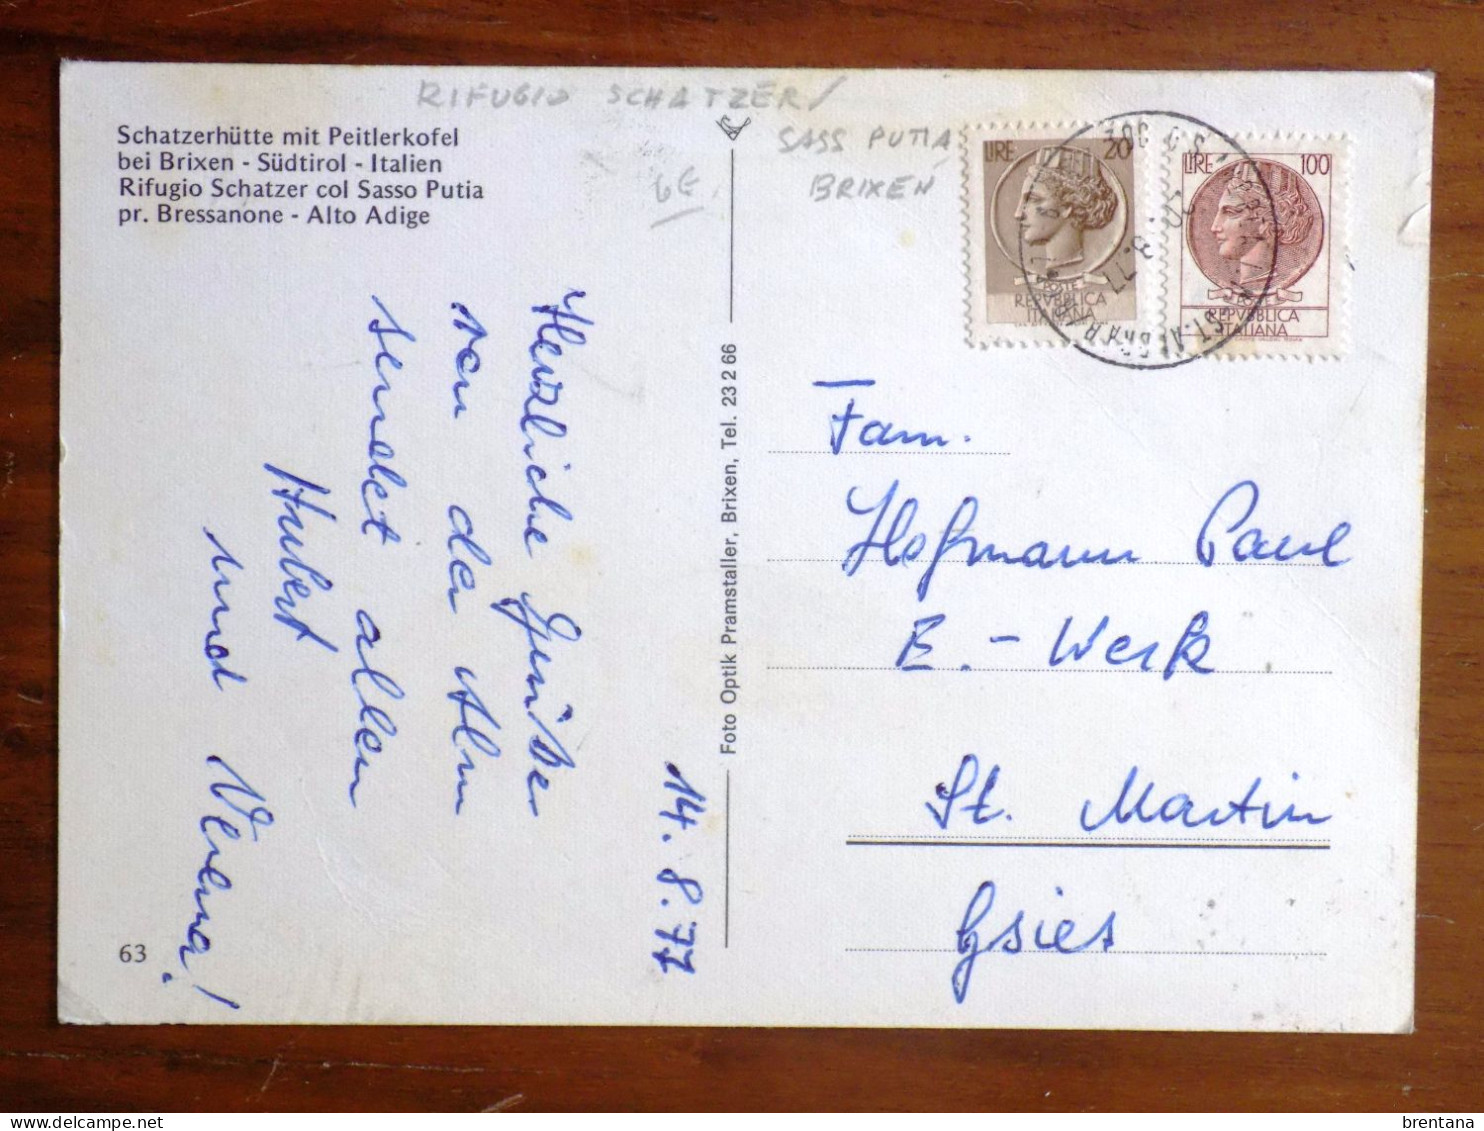 RIFUGIO SCHATZER/
SASS PUTIA
BRIXEN
6€
Schatzerhütte mit Peitlerkofel
bei Brixen - Südtirol - Italien
Rifugio Schatzer col Sasso Putia
pr. Bressanone - Alto Adige
LIRE 20
POSTE
REPVBBLICA
ITALIANA
LIRE 100
REPVBBLICA
ITALIANA
14.8.77
Herzliche Grüße
von der Alm
sendet allen
Hubert
und Verena!
Foto Optik Pramstaller, Brixen, Tel. 23 2 66
Fam.
Hofmann Paul
E.-Werk
St. Martin
Gsies
63
brentana